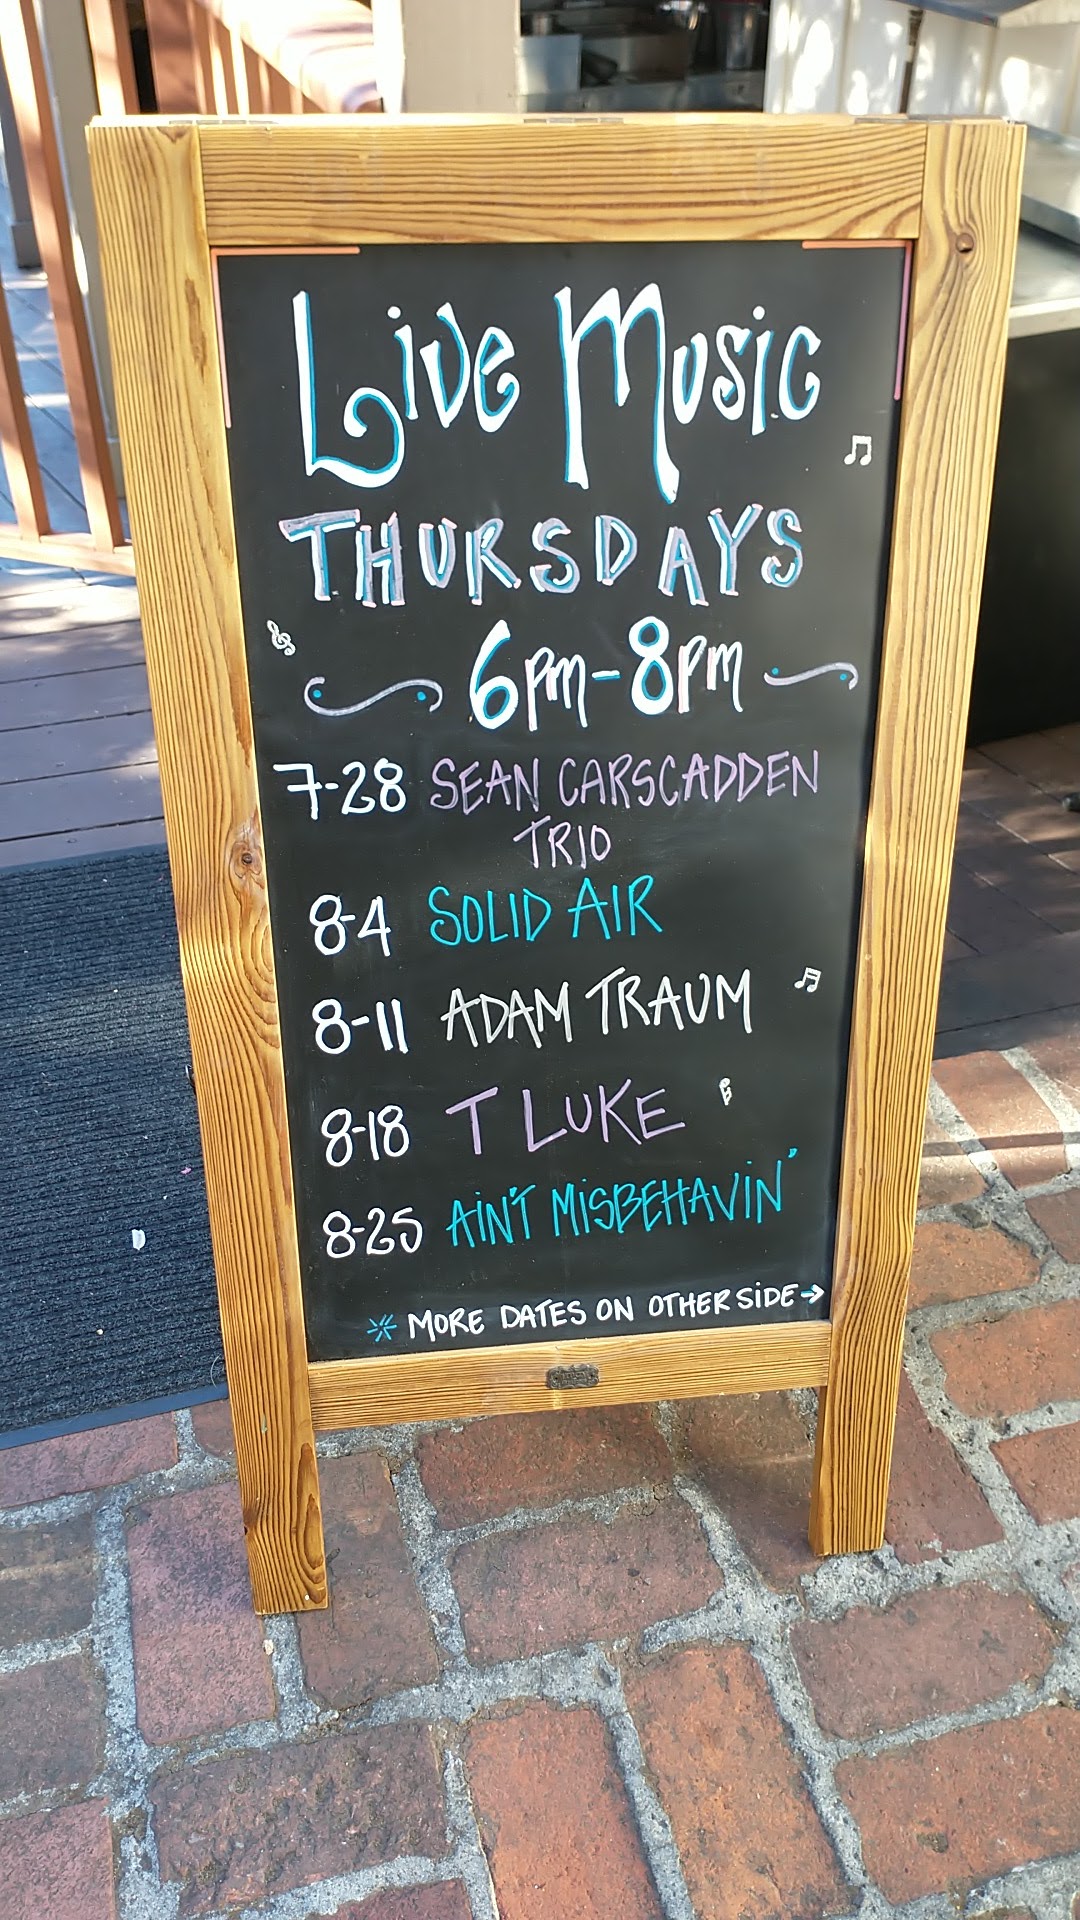 Live Music
THURSDAYS
6pm-8pm
7-28 SEAN CARSCADDEN
TRIO
8-4 SOLID AIR
8-11 ADAM TRAUM
8-18 T LUKE
8-25 AIN'T MISBEHAVIN'
* MORE DATES ON OTHER SIDE →